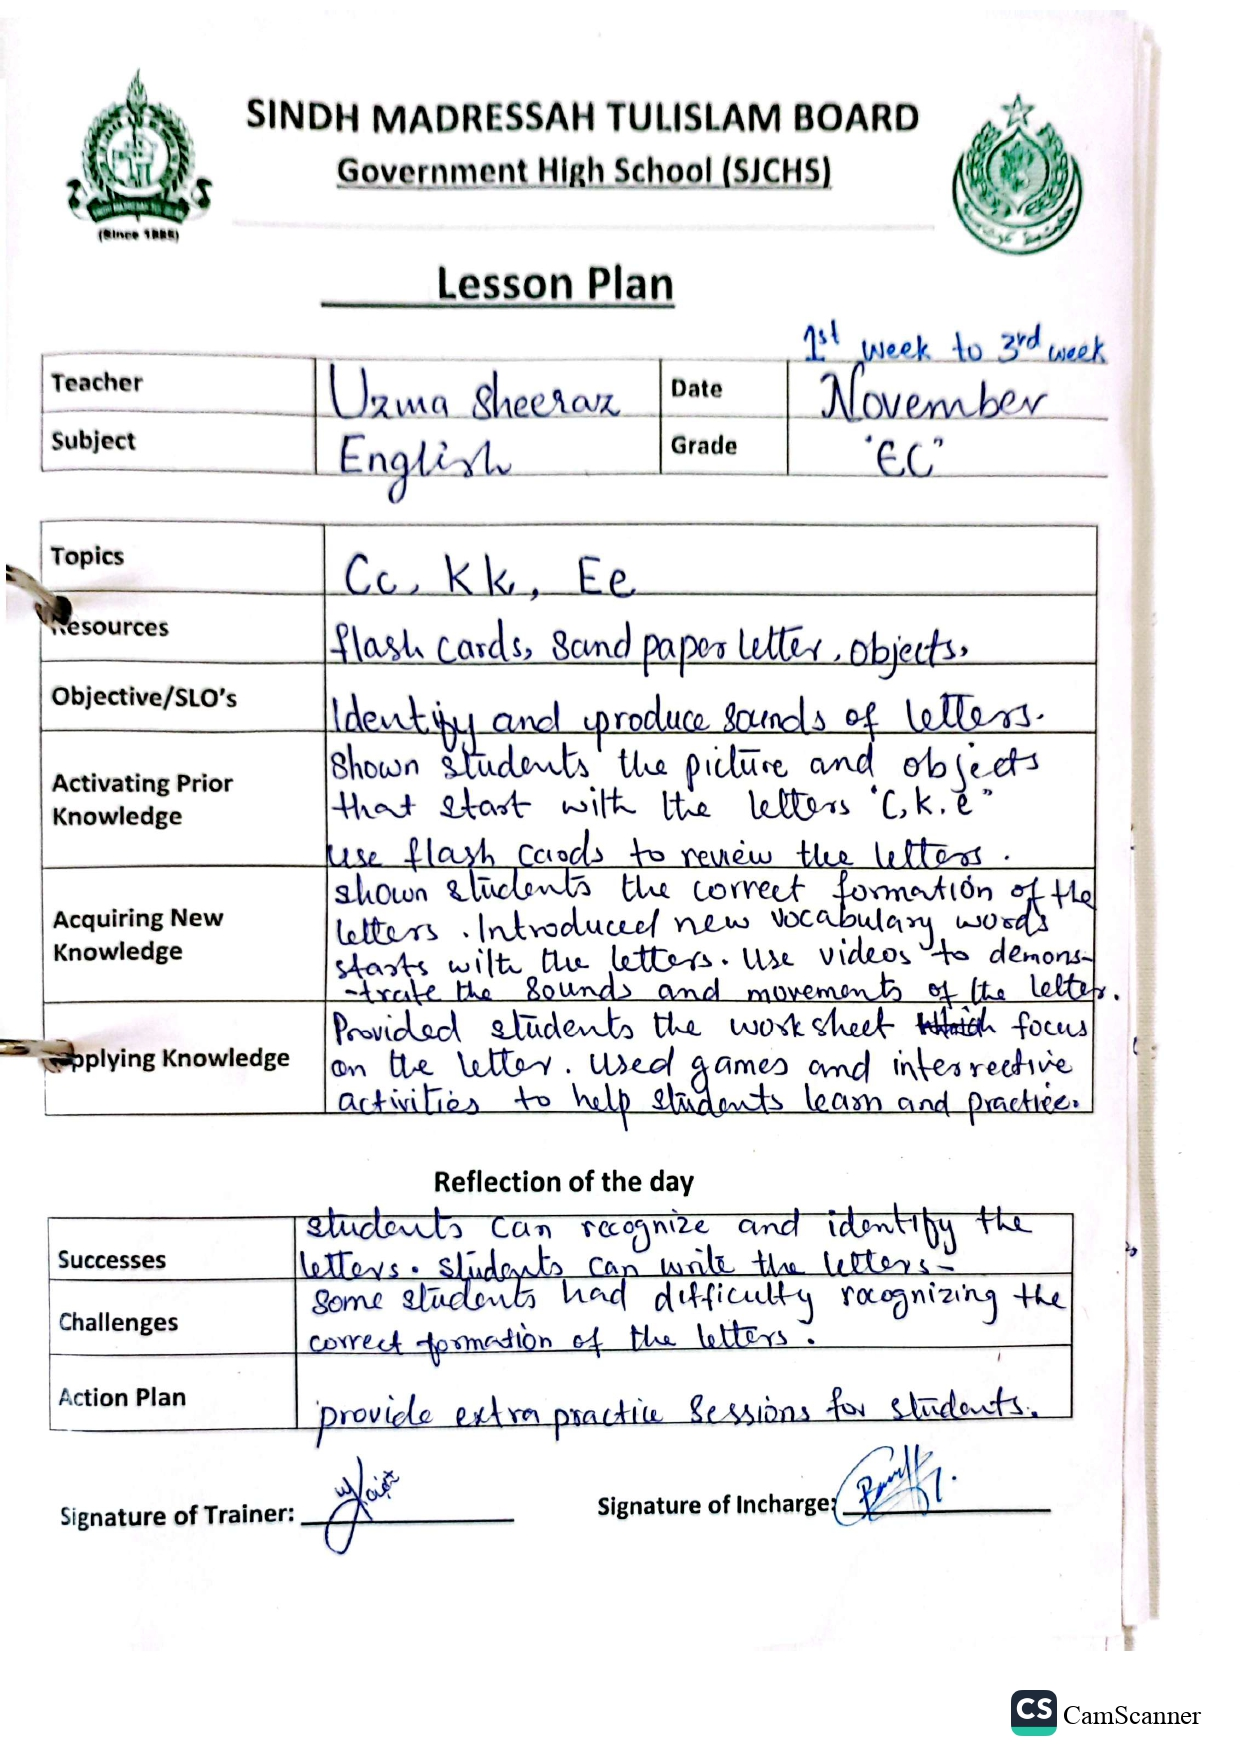 SINDH MADRESSAH TULISLAM BOARD
Government High School (SJCHS)
(Since 1885)
Lesson Plan
1st week to 3rd week
Teacher Uzma Sheeraz Date November
Subject English Grade "EC"
Topics Cc, Kk, Ee
Resources flash cards, Sand paper letter, objects.
Objective/SLO's Identify and produce sounds of letters.
Activating Prior Knowledge
Shown students the picture and objects
that start with the letters "C, k, e"
use flash cards to review the letters.
Acquiring New Knowledge
shown students the correct formation of the
letters. Introduced new vocabulary words
starts with the letters. use videos to demons-
-trate the sounds and movements of the letter.
Applying Knowledge
Provided students the worksheet which focus
on the letter. used games and interrective
activities to help students learn and practice.
Reflection of the day
Successes
students can recognize and identify the
letters. students can write the letters-
Challenges
some students had difficulty recognizing the
correct formation of the letters.
Action Plan provide extra practice sessions for students.
Signature of Trainer: Signature of Incharge:
CS CamScanner